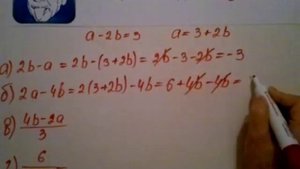 a-2b=3 a=3+2b
а) 2b-a = 2b-(3+2b) = 2b-3-2b = -3
б) 2a-4b = 2(3+2b)-4b = 6+4b-4b =
в) \frac{4b-2a}{3}
г) 6